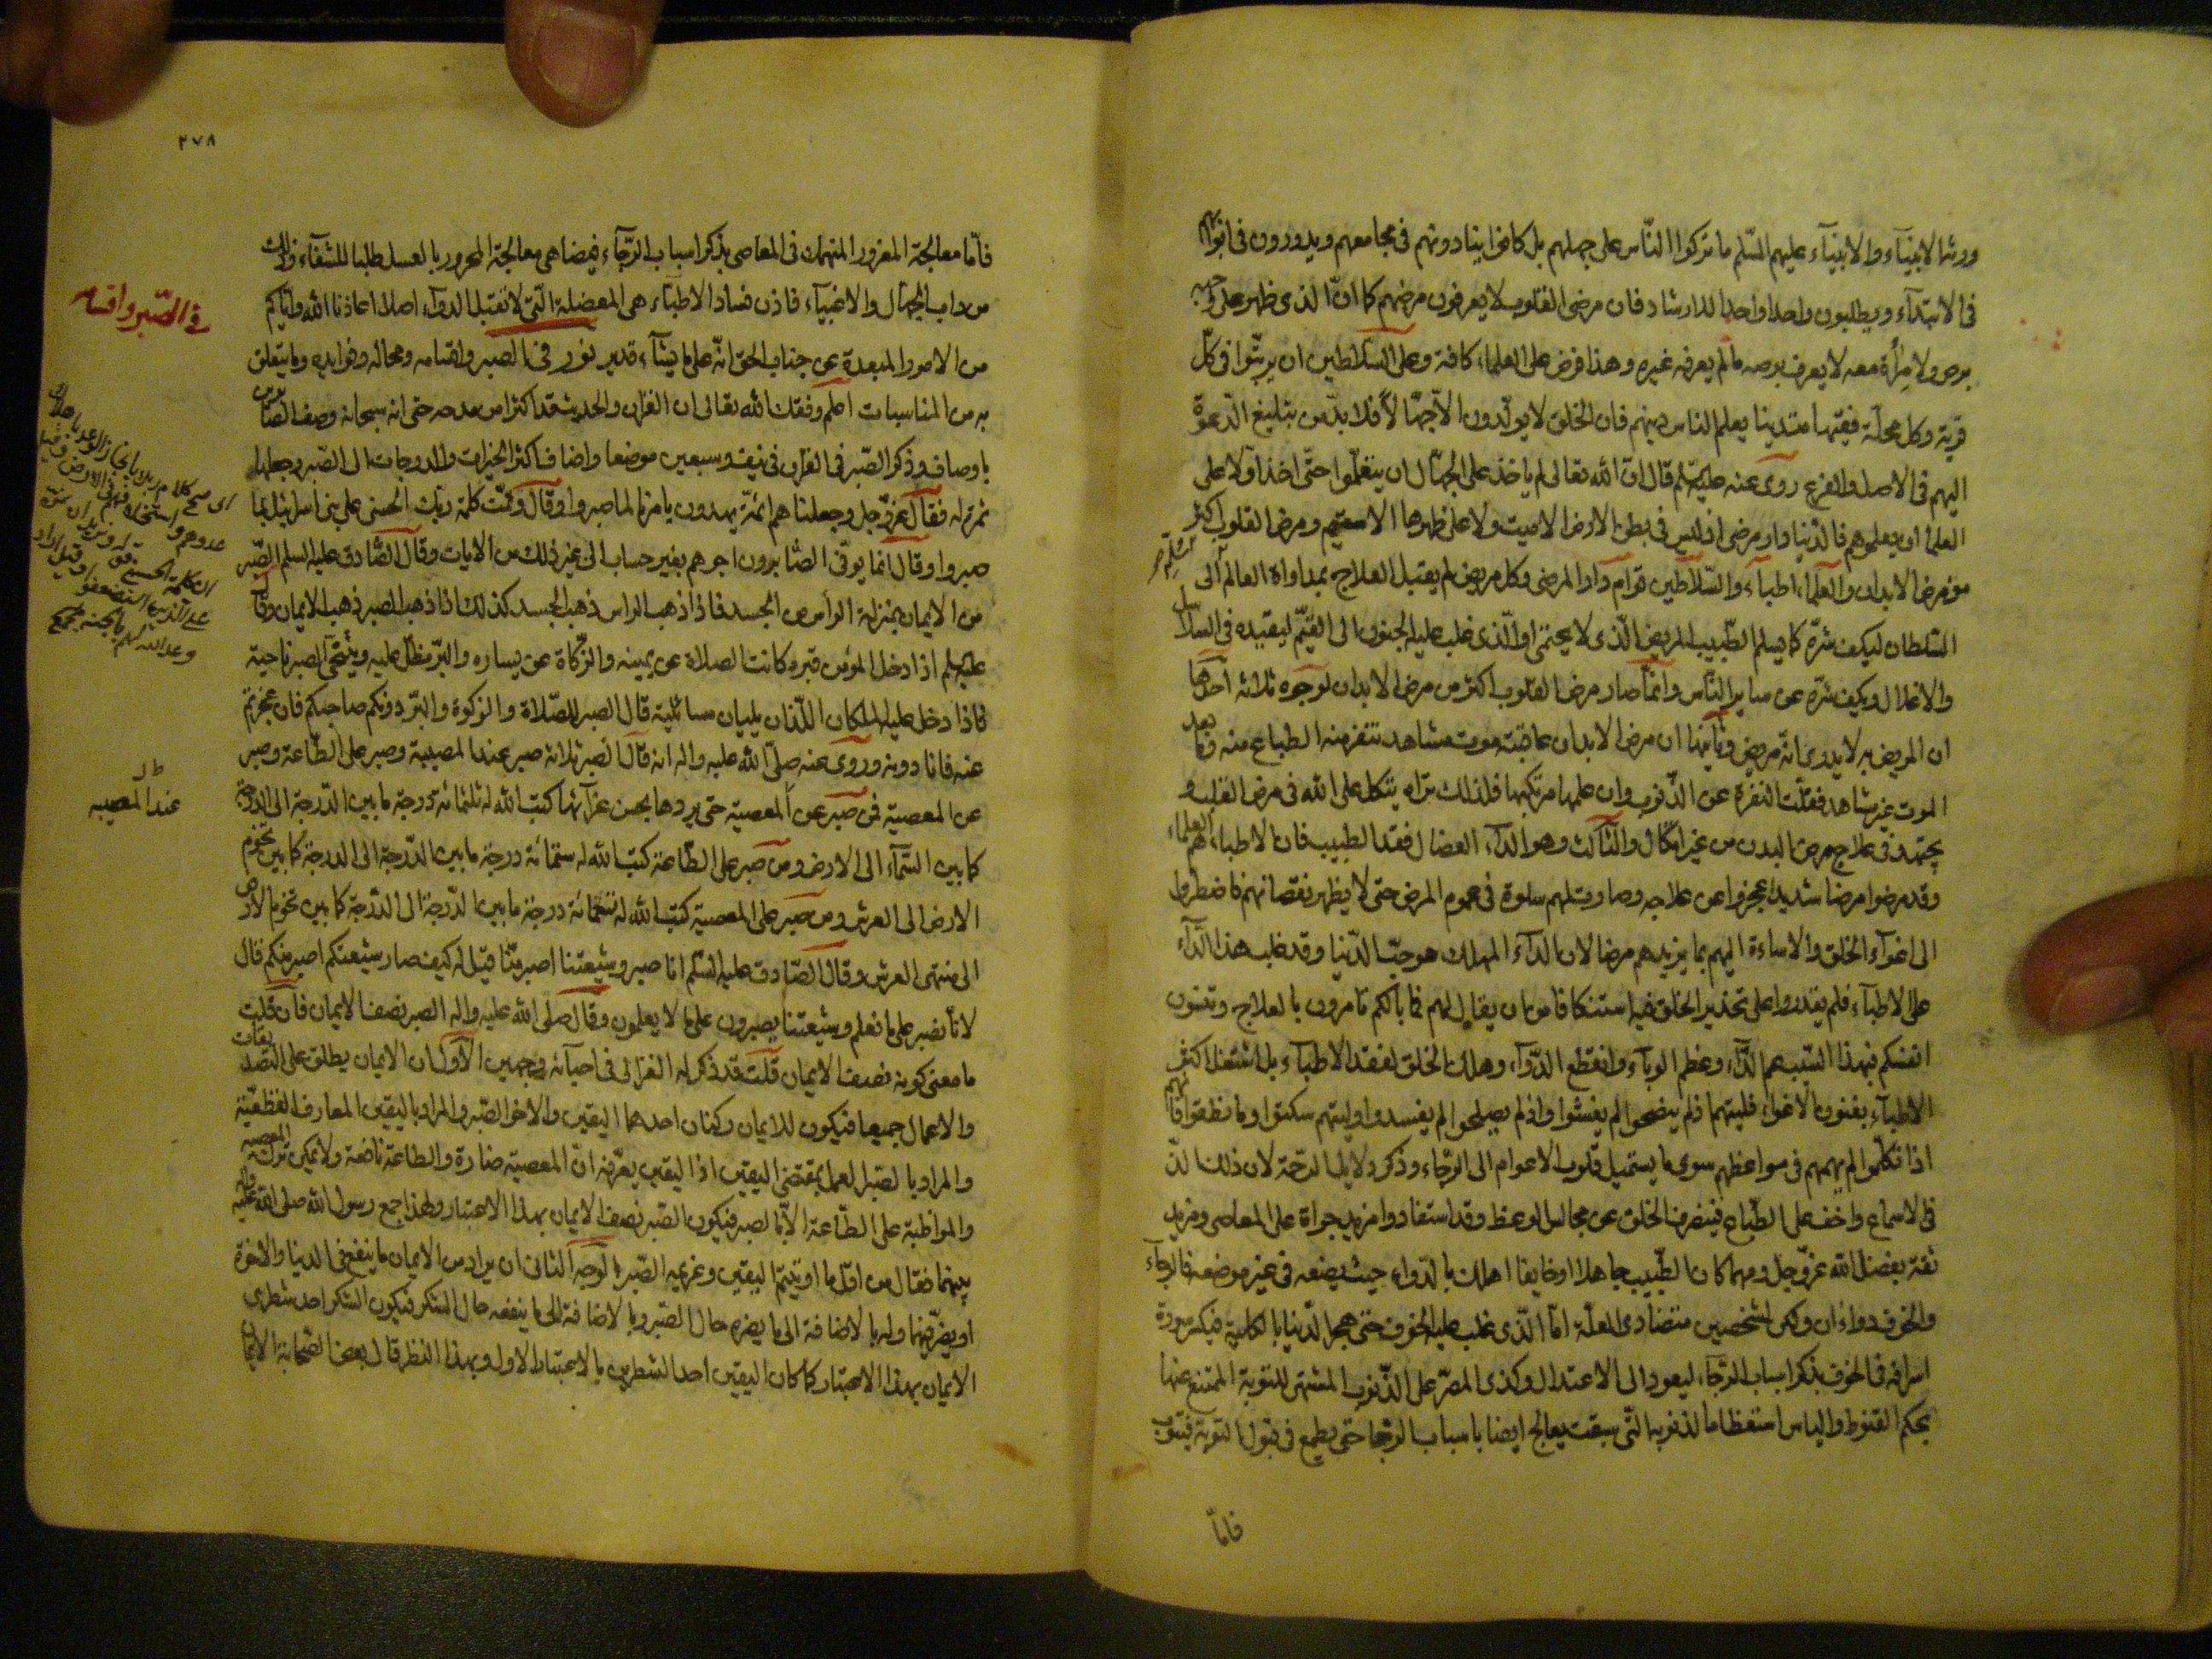 ورثة الانبيآء والانبيآء عليهم السّلم ما تركوا النّاس على جهلهم بل كانوا ينادونهم فى مجامعهم ويدورون فى ابوابهم
فى الابتدآء ويطلبون واحدا واحدا للارشاد فان مرضى القلوب لا يعرفون مرضهم كما انّ الذى ظهر على وجهه
برص ولا مرأة معه لا يعرف برصه ما لم يعرفه غيره وهذا فرض على العلمآء كافة وعلى السّلاطين ان يرتّبوا فى كلّ
قرية وكل محلّة فقيها متدينا يعلم الناس دينهم فان الخلق لا يولدون الّا جهّالا فلا بدّ من تبليغ الدّعوة
اليهم فى الاصل والفرع روى عنه عليه السّلم قال انّ الله تعالى لم ياخذ على الجهّال ان يتعلّموا حتّى اخذ اوّلا على
العلمآء ان يعلموهم فالدّنيا دار مرضى اذ ليس فى بطن الارض الا ميت ولا على ظهرها الا سقيم ومرض القلوب اكثر
من مرض الابدان والعلمآء اطبآء والسّلاطين قوام دار المرضى وكل مريض لم يقبل العلاج بمداواة العالم
السّلطان ليكف شرّه كما يسلم الطّبيب المريض الّذى لا يحتمى او الّذى غلب عليه الجنون الى القيّم ليقيده فى السلاسل
والاغلال ويكف شرّه عن ساير النّاس وانّما صار مرض القلوب اكثر من مرض الابدان لوجوه ثلاثه احدها
ان المريض به لا يدرى انّه مريض وثانيها ان مرض الابدان عاقبته موت مشاهد تتنفر منه الطباع منه وما بعد
الموت غير مشاهد فقلّت النفرة عن الذّنوب وان علمها مرتكبها فلذلك تراه يتكل على الله فى مرض القلب و
يجتهد فى علاج مرض البدن من غير اتكال والثّالث وهو الدّآء العضال فقد الطبيب فان الاطبآء هم العلماء
وقد مرضوا مرضا شديدا عجزوا عن علاجه وصارت لهم سلوة فى عموم المرض حتى لا يظهر نقصانهم فاضطروا
الى اغوآء الخلق والاساءة اليهم بما يزيدهم مرضا لان الدآء المهلك هو حبّ الدّنيا وقد غلب هذا الدّآء
على الاطبآء فلم يقدروا على تحذير الخلق منه استنكافا من ان يقال لهم فما بالكم تامرون بالعلاج وتنسون
انفسكم فبهذا السّبب عم الدّآء وعظم الوبآء وانقطع الدّوآء وهلك الخلق لفقد الاطبآء بل اشتغل اكثر
الاطبآء بفنون الاغواء فليتهم اذ لم ينصحوا لم يغشوا واذ لم يصلحوا لم يفسدوا وليتهم سكتوا وما نطقوا فانّهم
اذا تكلّموا لم يهمهم فى مواعظهم سوى ما يستميل قلوب الاعوام الى الرّجاء وذكر دلايل الرّحمة لان ذلك الذّ
فى الاسماع واخف على الطّباع فينصرف الخلق عن مجالس الوعظ وقد استفادوا مزيد جراة على المعاصى ومزيد
ثقة بفضل الله عزّ وجل ومهما كان الطّبيب جاهلا او خاينا اهلك بالدّواء حيث يضعه فى غير موضعه فالرجآء
والخوف دواءان ولكن لشخصين متضادى العلّة امّا الّذى غلب عليه الخوف حتى هجر الدّنيا بالكلية فيكسر سورة
اسرافه فى الخوف بذكر اسباب الرّجآء ليعود الى الاعتدال وكذى المصرّ على الذّنوب المشتهى للتوبة الممتنع عنها
بحكم القنوط والياس استعظاما لذنوبه الّتى سبقت يعالج ايضا باسباب الرّجا حتى يطمع فى قبول التوبة فيتوب
فامّا
٢٧٨
فامّا معالجة المغرور المنهمك فى المعاصى بذكر اسباب الرّجآء فيضاهى معالجة المحرور بالعسل طلبا للشفآء وذلك
من داب الجهّال والاغبيآء فاذن فساد الاطبآء هى المعضلة الّتى لا تقبل الدوآء اصلا اعاذنا الله وايّاكم
من الامور المبعدة عن جناب الحق انّه على ما يشآء قدير نور فى الصبر واقسامه ومحاله وفوايده وما يتعلق
به من المناسبات اعلم وفقك الله تعالى ان القران والحديث قد اكثرا من مدحه حتى انه سبحانه وصف الصّابرين
باوصاف وذكر الصّبر فى القران فى نيف وسبعين موضعا واضاف اكثر الخيرات والدرجات الى الصّبر وجعلها
ثمرة له فقال عزّ وجل وجعلناهم ائمّة يهدون بامرنا لما صبروا وقال وتمّت كلمة ربّك الحسنى على بنى اسرائيل بما
صبروا وقال انّما يوفّى الصّابرون اجرهم بغير حساب الى غير ذلك من الايات وقال الصّادق عليه السلم الصّبر
من الايمان بمنزلة الراس من الجسد فاذا ذهب الراس ذهب الجسد كذلك اذا ذهب الصبر ذهب الايمان وقال
عليه السلم اذا دخل المؤمن قبره كانت الصلاة عن يمينه والزّكاة عن يساره والبرّ مظلّ عليه ويتنحّى الصبر ناحية
فاذا دخل عليه الملكان اللّذان يليان مسائلته قال الصبر للصّلاة والزكوة والبرّ دونكم صاحبكم فان عجزتم
عنه فانا دونه وروى عنه صلّى الله عليه واله انه قال الصّبر ثلاثه صبر عند المصيبة وصبر على الطّاعة وصبر
عن المعصية فمن صبر على المعصية حتى يردها بحسن عزآئها كتب الله له ثلثمائة درجة ما بين الدّرجة الى الدرجة
كما بين السّمآء الى الارض ومن صبر على الطّاعة كتب الله له ستمائة درجة ما بين الدّرجة الى الدرجة كما بين تخوم
الارض الى العرش ومن صبر على المعصية كتب الله له تسعمائة درجة ما بين الدّرجة الى الدّرجة كما بين تخوم الارض
الى منتهى العرش وقال الصّادق عليه السّلم انا صبر وشيعتنا اصبر منّا قيل له كيف صار شيعتكم اصبر منكم قال
لانّا نصبر على ما نعلم وشيعتنا يصبرون على ما لا يعلمون وقال صلى الله عليه واله الصبر نصف الايمان فان قلت
ما معنى كونه نصف الايمان قلت قد ذكر له الغزالى فى احيآئه وجهين الاوّل ان الايمان يطلق على التصديقات
والاعمال جميعا فيكون للايمان ركنان احدهما اليقين والاخر الصّبر والمراد باليقين المعارف القطعيّة
والمراد بالصّبر العمل بمقتضى اليقين اذ اليقين يعرّفه انّ المعصية ضارة والطاعة نافعة ولا يمكن ترك المعصية
والمواظبة على الطّاعة الّا بالصبر فيكون الصّبر نصف الايمان بهذا الاعتبار ولهذا جمع رسول الله صلى الله عليه واله
بينهما فقال من اقلّ ما اوتيتم اليقين وعزيمة الصّبر الوجه الثانى ان يراد من الايمان ما ينفع فى الدنيا والاخرة
او يضرّ فيهما وله بالاضافة الى ما يضره حال الصّبر وبالاضافة الى ما ينفعه حال الشكر فيكون الشكر احد شطرى
الايمان بهذا الاعتبار كما كان اليقين احد الشطرين بالاعتبار الاول وبهذا النظر قال بعض الصّحابة الايمان
فى الصّبر واقسامه
عند المصيبه